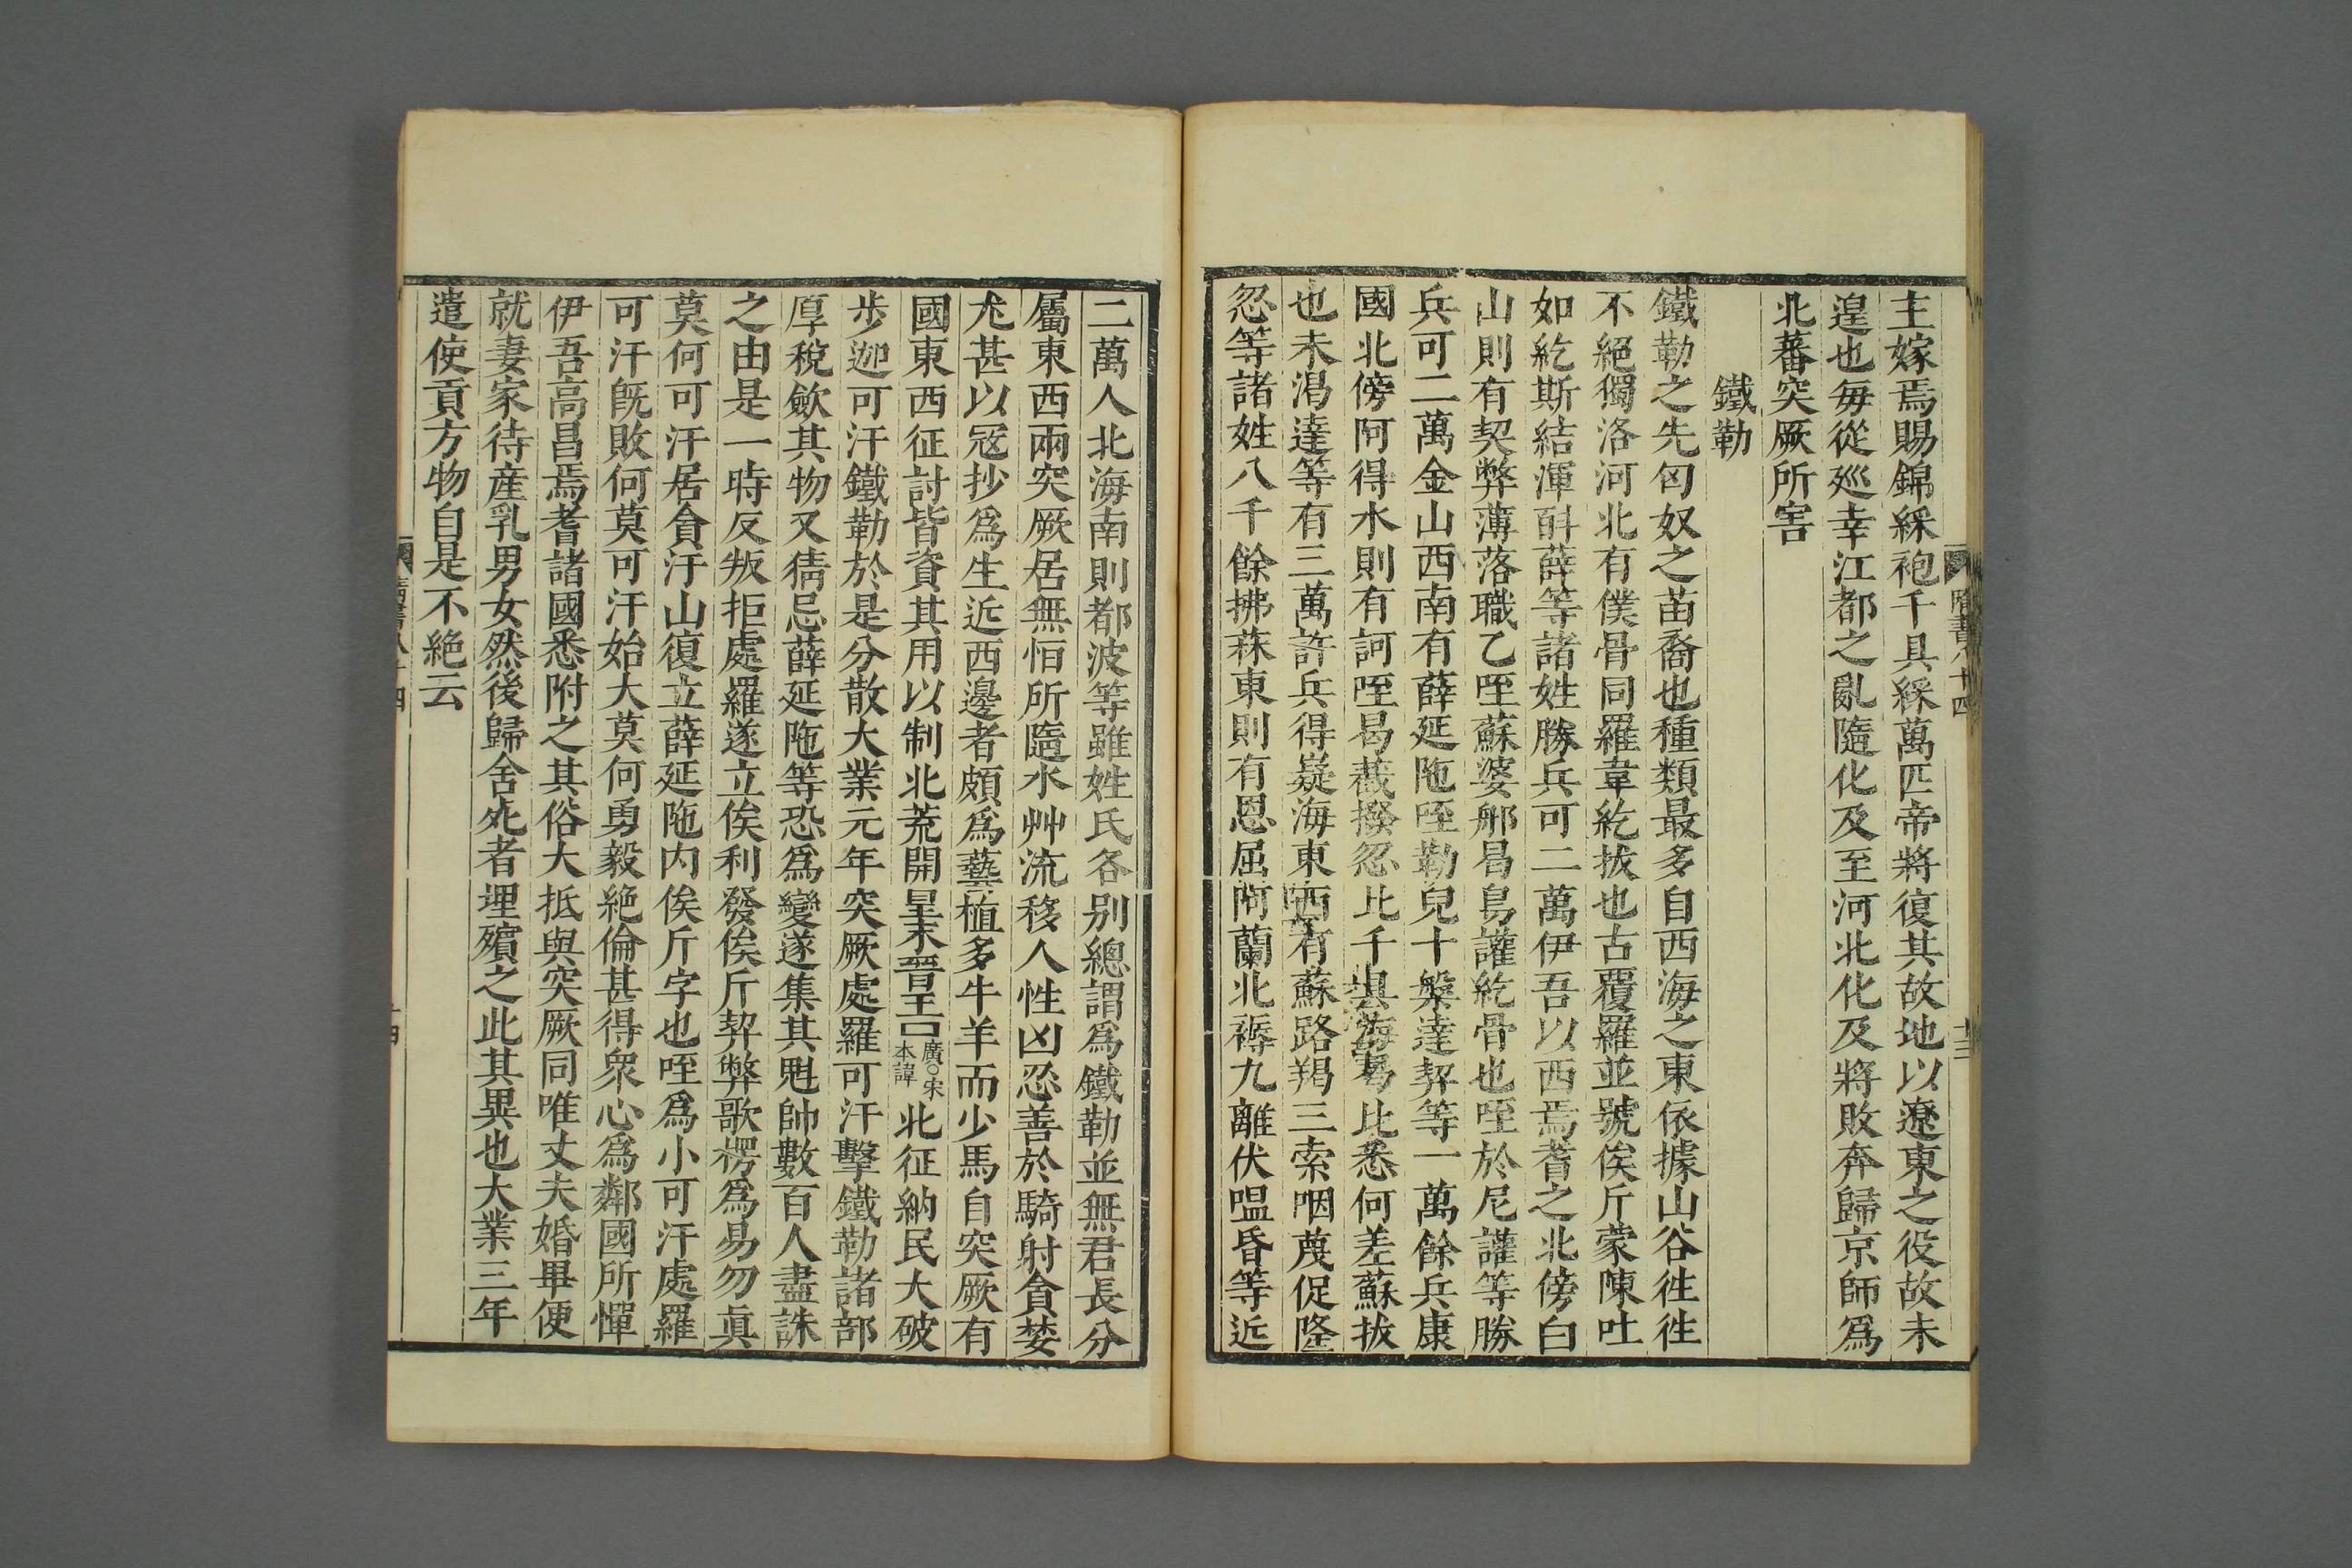 主嫁焉賜錦綵袍千具綵萬匹帝將復其故地以遼東之役故未
遑也每從廵幸江都之亂隨化及至河北化及將敗奔歸京師爲
北蕃突厥所害
鐵勒
鐵勒之先匈奴之苗裔也種類最多自西海之東依據山谷徃徃
不絕獨洛河北有僕骨同羅韋紇拔也古覆羅並號俟斤蒙陳吐
如紇斯結渾斛薛等諸姓勝兵可二萬伊吾以西焉耆之北傍白
山則有契弊薄落職乙咥蘇婆那曷烏讙紇骨也咥於尼讙等勝
兵可二萬金山西南有薛延陁咥勒兒十槃達契等一萬餘兵康
國北傍阿得水則有訶咥曷㠜撥忽比千具海曷比悉何差蘇拔
也未渴達等有三萬許兵得嶷海東西有蘇路羯三索咽蔑促隆
忽等諸姓八千餘拂菻東則有恩屈阿蘭北褥九離伏嗢昏等近
隋書八十四
十三
二萬人北海南則都波等雖姓氏各别總謂爲鐵勒並無君長分
屬東西兩突厥居無恒所隨水艸流移人性凶忍善於騎射貪婪
尤甚以寇抄爲生近西邊者頗爲藝植多牛羊而少馬自突厥有
國東西征討皆資其用以制北荒開皇末晉王廣○宋本諱北征納民大破
步迦可汗鐵勒於是分散大業元年突厥處羅可汗擊鐵勒諸部
厚稅歛其物又猜忌薛延陁等恐爲變遂集其魁帥數百人盡誅
之由是一時反叛拒處羅遂立俟利發俟斤契弊歌楞爲易勿真
莫何可汗居貪汙山復立薛延陁内俟斤字也咥爲小可汗處羅
可汗旣敗何莫可汗始大莫何勇毅絶倫甚得衆心爲鄰國所憚
伊吾高昌焉耆諸國悉附之其俗大抵與突厥同唯丈夫婚畢便
就妻家待産乳男女然後歸舍死者埋殯之此其異也大業三年
遣使貢方物自是不絶云